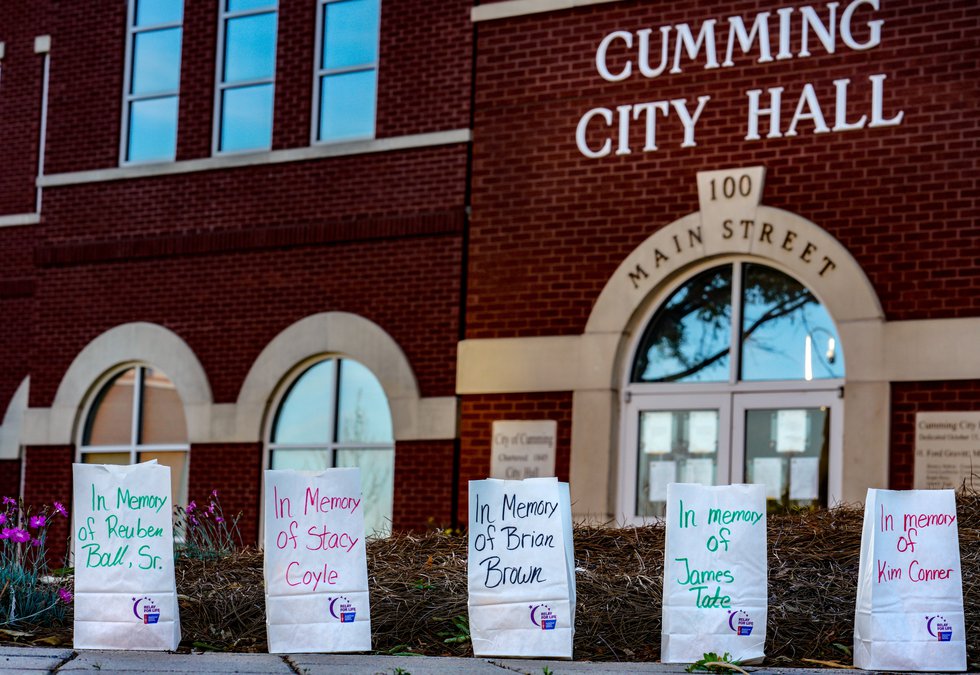 CUMMING
CITY HALL
100
MAIN STREET
City of Cumming
Chartered 1845
City Hall
Cumming City
Dedicated October
H. Ford Gravitt, M
In Memory
of Reuben
Ball, Sr.
RELAY FOR LIFE
In Memory
of Stacy
Coyle
RELAY FOR LIFE
In Memory
of Brian
Brown
RELAY FOR LIFE
In memory
of
James
Tate
RELAY FOR LIFE
In memory
of
Kim Conner
RELAY FOR LIFE